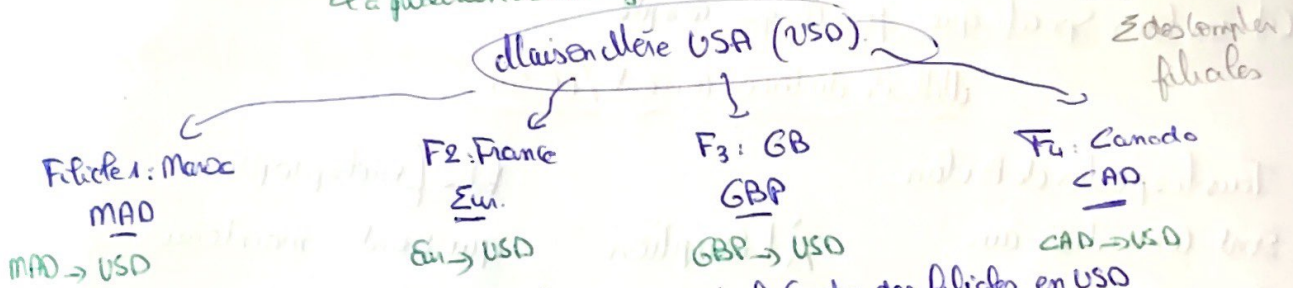 Maison Mère USA (USD).
Σ des Comptes
filiales
Filiale 1: Maroc
MAD
MAD → USD
F2: France
Eur.
Eur → USD
F3: GB
GBP
GBP → USD
F4: Canada
CAD
CAD → USD
des filiales en USD